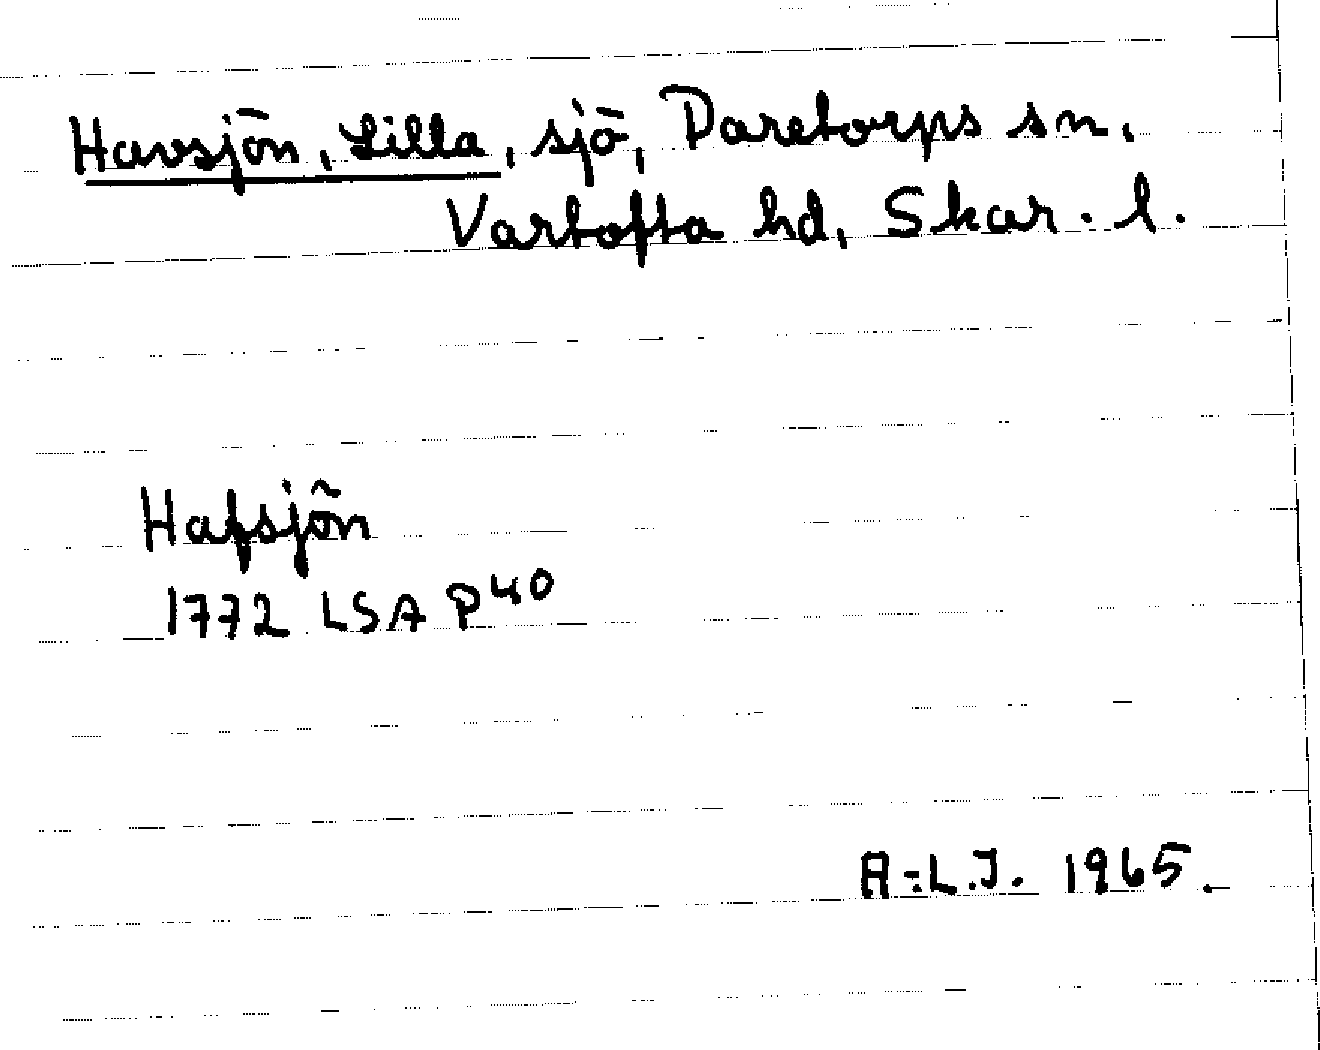 Havsjön, Lilla, sjö, Daretorps sn,
Vartofta hd, Skar. l.
Hafsjön
1772 LSA P40
A-L.J. 1965.